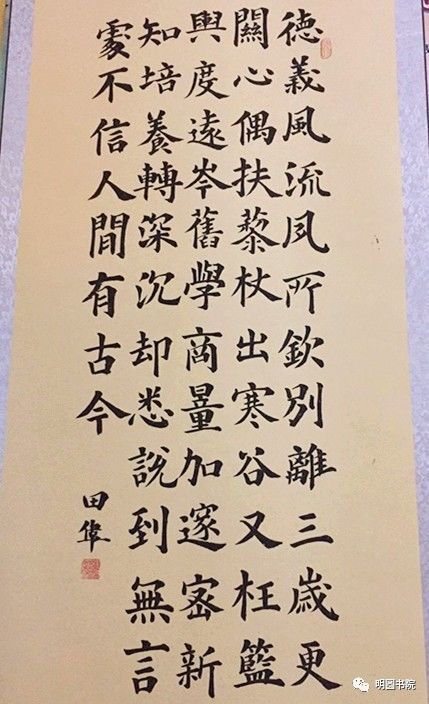 德義風流夙所欽別離三歲更
關心偶扶藜杖出寒谷又枉籃
輿度遠岑舊學商量加邃密新
知培養轉深沉却悉說到無言
處不信人間有古今
田偉
明园书院